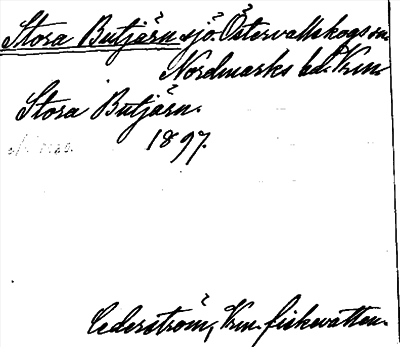 Stora Butjärn sjö. Östervallskogs sn.
Nordmarks hd. Vrm.
Stora Butjärn.
1897.
Cederström, Vrm. fiskevatten.